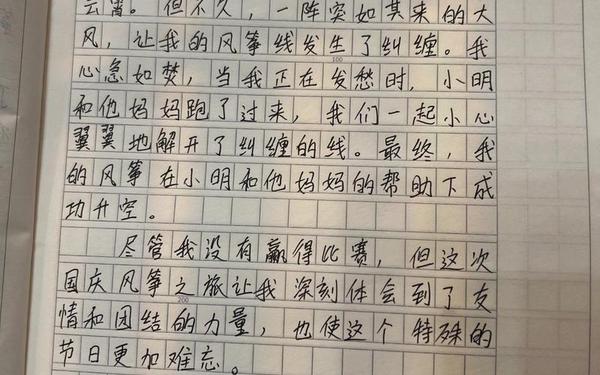 云霄。但不久，一阵突如其来的大
风，让我的风筝线发生了纠缠。我
100
心急如焚，当我正在发愁时，小明
和他妈妈跑了过来，我们一起小心
翼翼地解开了纠缠的线。最终，我
的风筝在小明和他妈妈的帮助下成
功升空。
尽管我没有赢得比赛，但这次
国庆风筝之旅让我深刻体会到了友
200
情和团结的力量，也使这个特殊的
节日更加难忘。